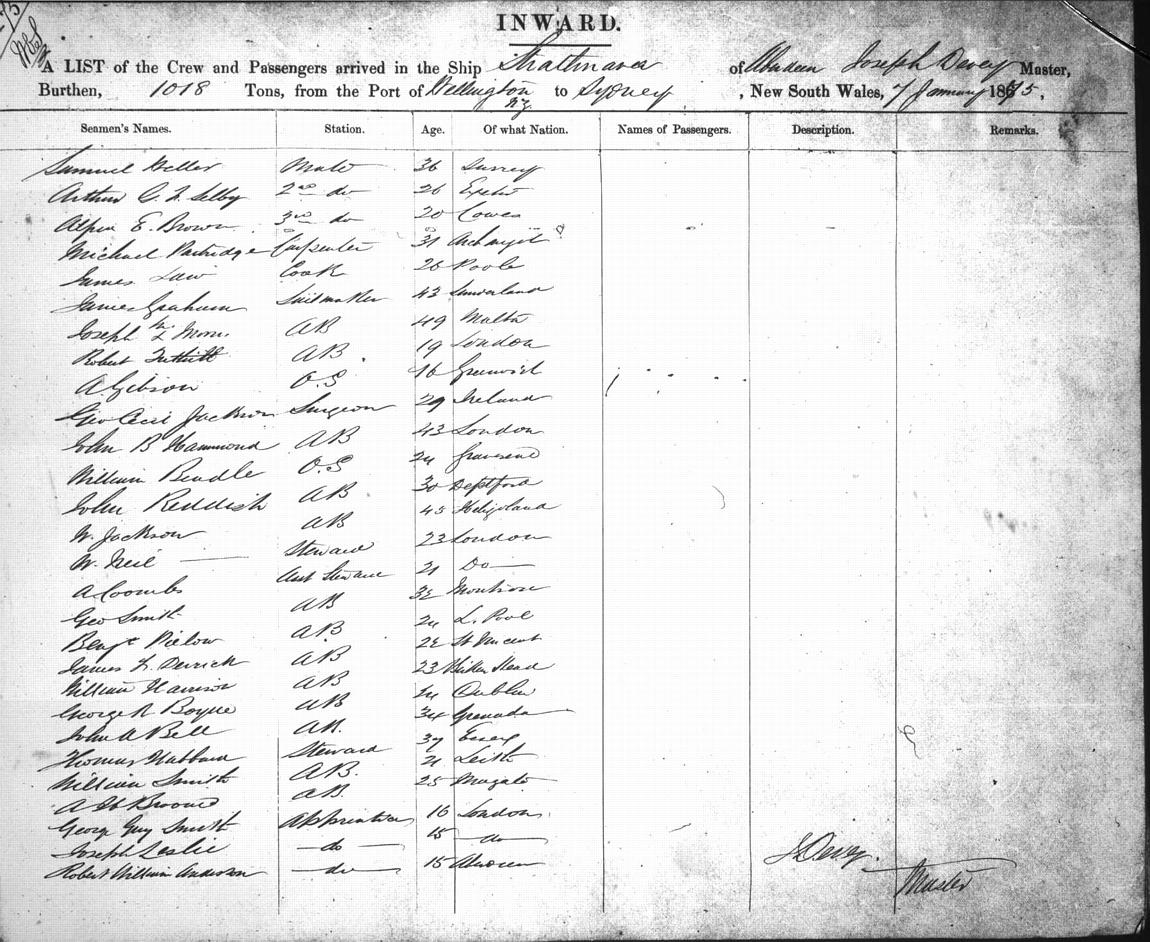 INWARD.
A LIST of the Crew and Passengers arrived in the Ship Strathnaver of Aberdeen Joseph Devey Master,
Burthen, 1018 Tons, from the Port of Wellington N.Z. to Sydney, New South Wales, 7 January 1875,
Seamen's Names. Station. Age. Of what Nation. Names of Passengers. Description. Remarks.
Samuel Mate 36 Surrey
Arthur C. F. Selby 2nd do 26 Exeter
Alpin E. Brown 3rd do 20 Cowes
Michael Partridge Carpenter 31
James Law Cook 26 Poole
James Graham Sailmaker 43 Sunderland
Joseph AB 49 Malta
Robert AB 19 London
A Gibson O.S 16 Greenwich
Geo Cecil Jackson Surgeon 29 Ireland
John B Hammond AB 43 London
William Beadle O.S 24 Gravesend
John Reddish AB 30 Deptford
W. Jackson AB 45 Heligoland
W. Neil Steward 23 London
A Coombs Asst Steward 21 Do
Geo Smith AB Montrose
Benj Pielow AB 24 L. Pool
James F. Derrick AB St Vincent
William Harrison AB 23 Birken Head
George R Boyne AB 24 Dublin
John A Bell AB. 34 Grenada
Thomas Hubbard Steward Essex
William Smith A.B. 21 Leith
A Broome AB 25
George Guy Smith Apprentices 16 London
Joseph Leslie do 15 do
Robert William Anderson do 15 Aberdeen
J Devey.
Master